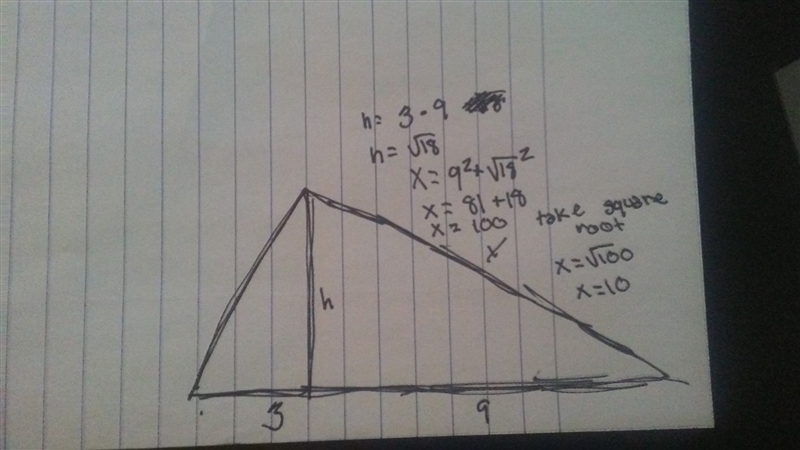 h= 3 · 9
h= √18
x= 9²+√18²
x= 81 +18
x= 100
take square
root
x=√100
x=10
x
h
3
9